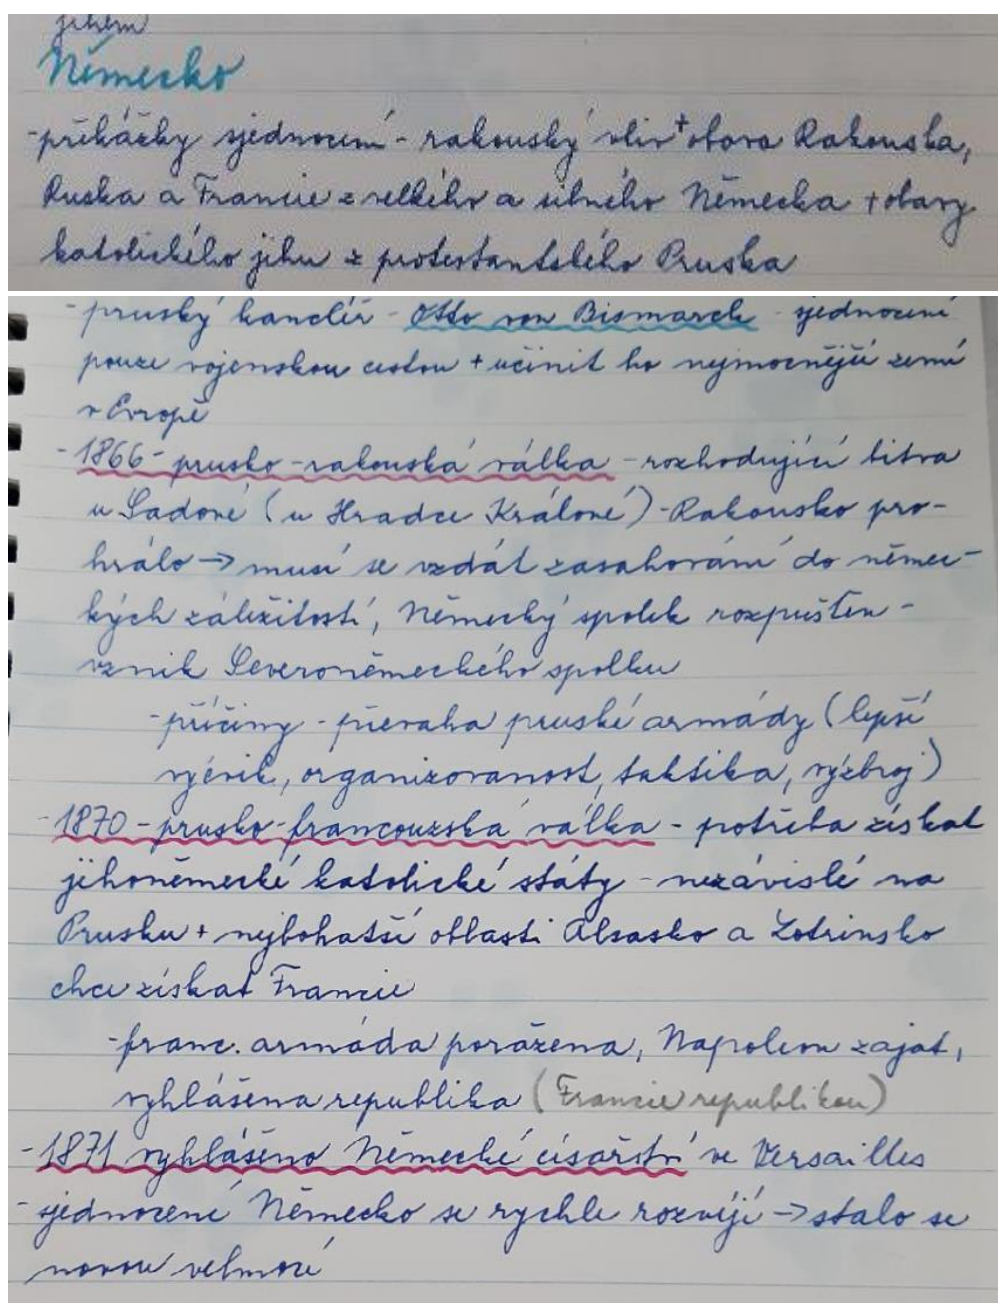 jihem
Německo
-překážky sjednocení - rakouský vliv + obava Rakouska,
Ruska a Francie z velkého a silného Německa + obavy
katolického jihu z protestantského Pruska
-pruský kancléř - Otto von Bismarck - sjednocení
pouze vojenskou cestou + učinit ho nejmocnější zemí
v Evropě
-1866- prusko-rakouská válka - rozhodující bitva
u Sadové (u Hradce Králové) - Rakousko pro-
hrálo → musí se vzdát zasahování do němec-
kých záležitostí, Německý spolek rozpuštěn -
vznik Severoněmeckého spolku
-příčiny - převaha pruské armády (lepší
výcvik, organizovanost, taktika, výzbroj)
-1870-prusko-francouzská válka - potřeba získat
jihoněmecké katolické státy - nezávislé na
Prusku + nejbohatší oblasti Alsasko a Lotrinsko
chce získat Francie
-franc. armáda poražena, Napoleon zajat,
vyhlášena republika (Francie republikou)
-1871 vyhlášeno Německé císařství ve Versailles
-sjednocené Německo se rychle rozvíjí → stalo se
novou velmocí